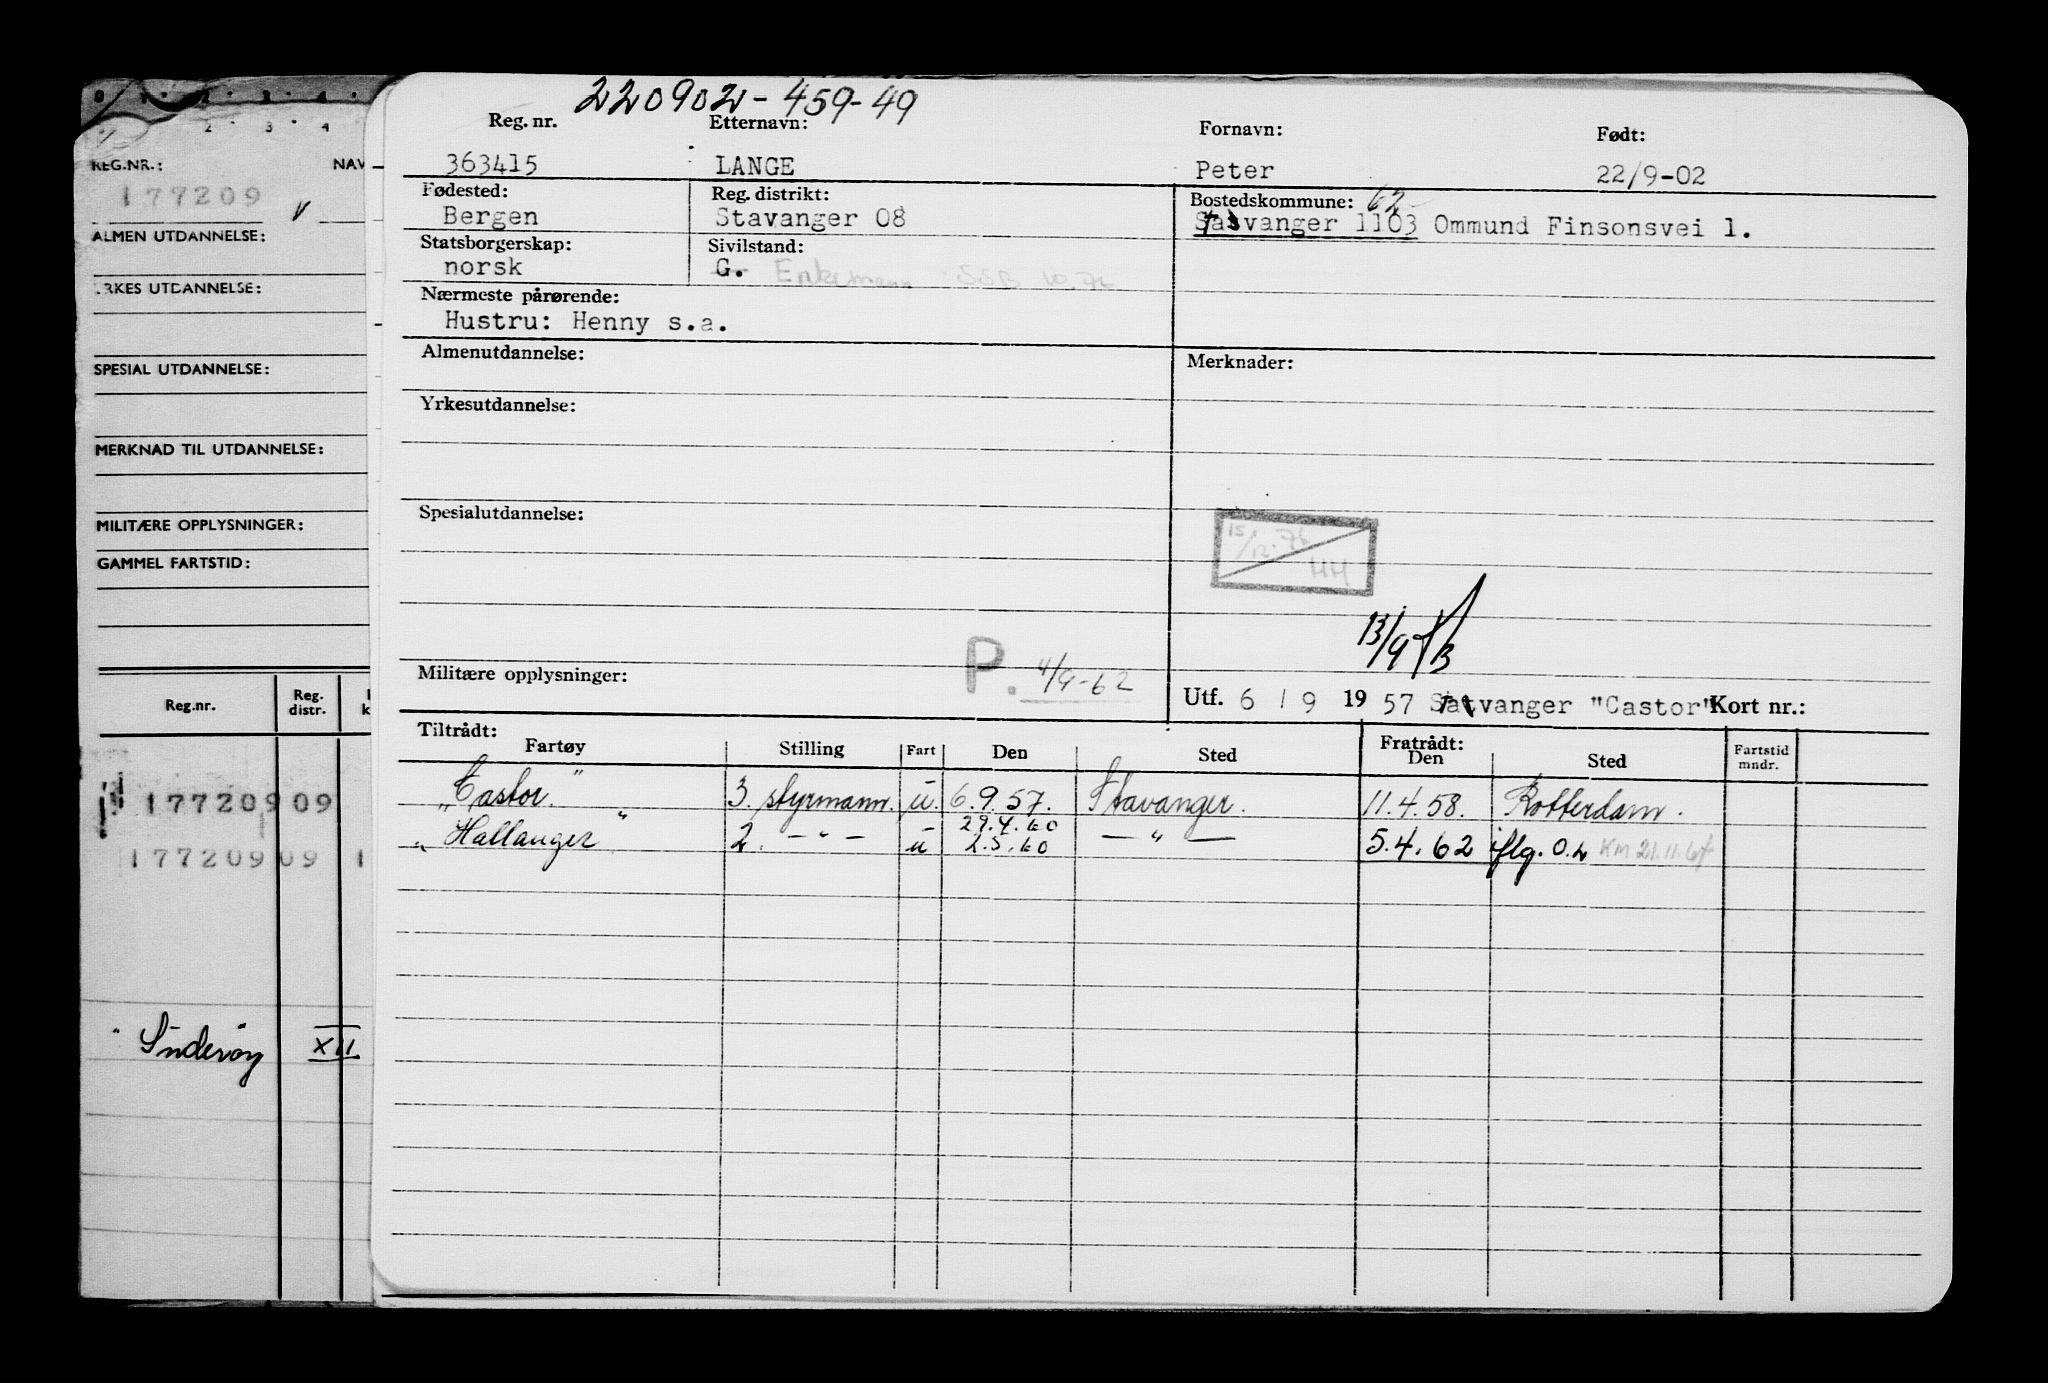 220902-459-49
Reg. nr. Etternavn: Fornavn: Født:
363415 LANGE Peter 22/9-02
Fødested: Reg. distrikt: Bostedskommune: 62
Bergen Stavanger 08 Stavanger 1103 Ommund Finsonsvei 1.
Statsborgerskap: Sivilstand:
norsk G. Enkemann SSB 10.76
Nærmeste pårørende:
Hustru: Henny s.a.
Almenutdannelse: Merknader:
Yrkesutdannelse:
Spesialutdannelse:
15/12.76 HH
13/9
Militære opplysninger: P. 4/9-62
Utf. 6 / 9 1957 Stavanger "Castor" Kort nr.:
Tiltrådt: Fratrådt:
Fartøy Stilling Fart Den Sted Den Sted Fartstid mndr.
"Castor" 3. styrmann. u. 6.9.57. Stavanger. 11.4.58. Rotterdam.
29.4.60
"Hallanger" 2. — " — u 2.5.60 — " — 5.4.62 iflg. O.L KM 21.11.67
0 1 2 3 4
2 3 4
REG.NR.: NAV
177209 v
ALMEN UTDANNELSE:
YRKES UTDANNELSE:
SPESIAL UTDANNELSE:
MERKNAD TIL UTDANNELSE:
MILITÆRE OPPLYSNINGER:
GAMMEL FARTSTID:
Reg.nr. Reg. distr. k
177209 09
177209 09 1
" Sinderöy XII